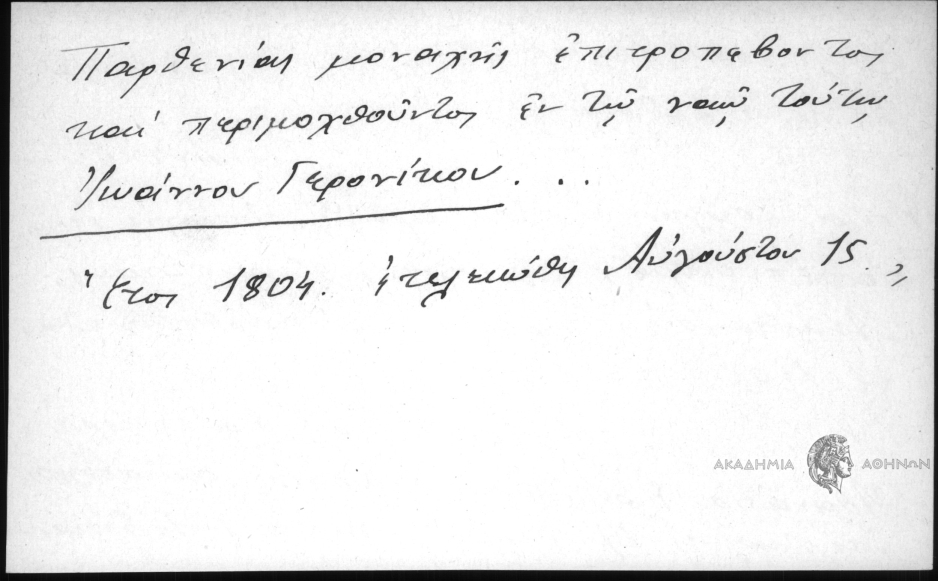 Παρθενίας μοναχῆς ἐπιτροπεβοντος
καὶ περιμοχθοῦντος ἐν τῷ ναῷ τούτῳ
Ἰωάννου Γερονίκου...
Ἔτος 1804. ἐτελειώθη Αὐγούστου 15"
ΑΚΑΔΗΜΙΑ ΑΘΗΝΩΝ